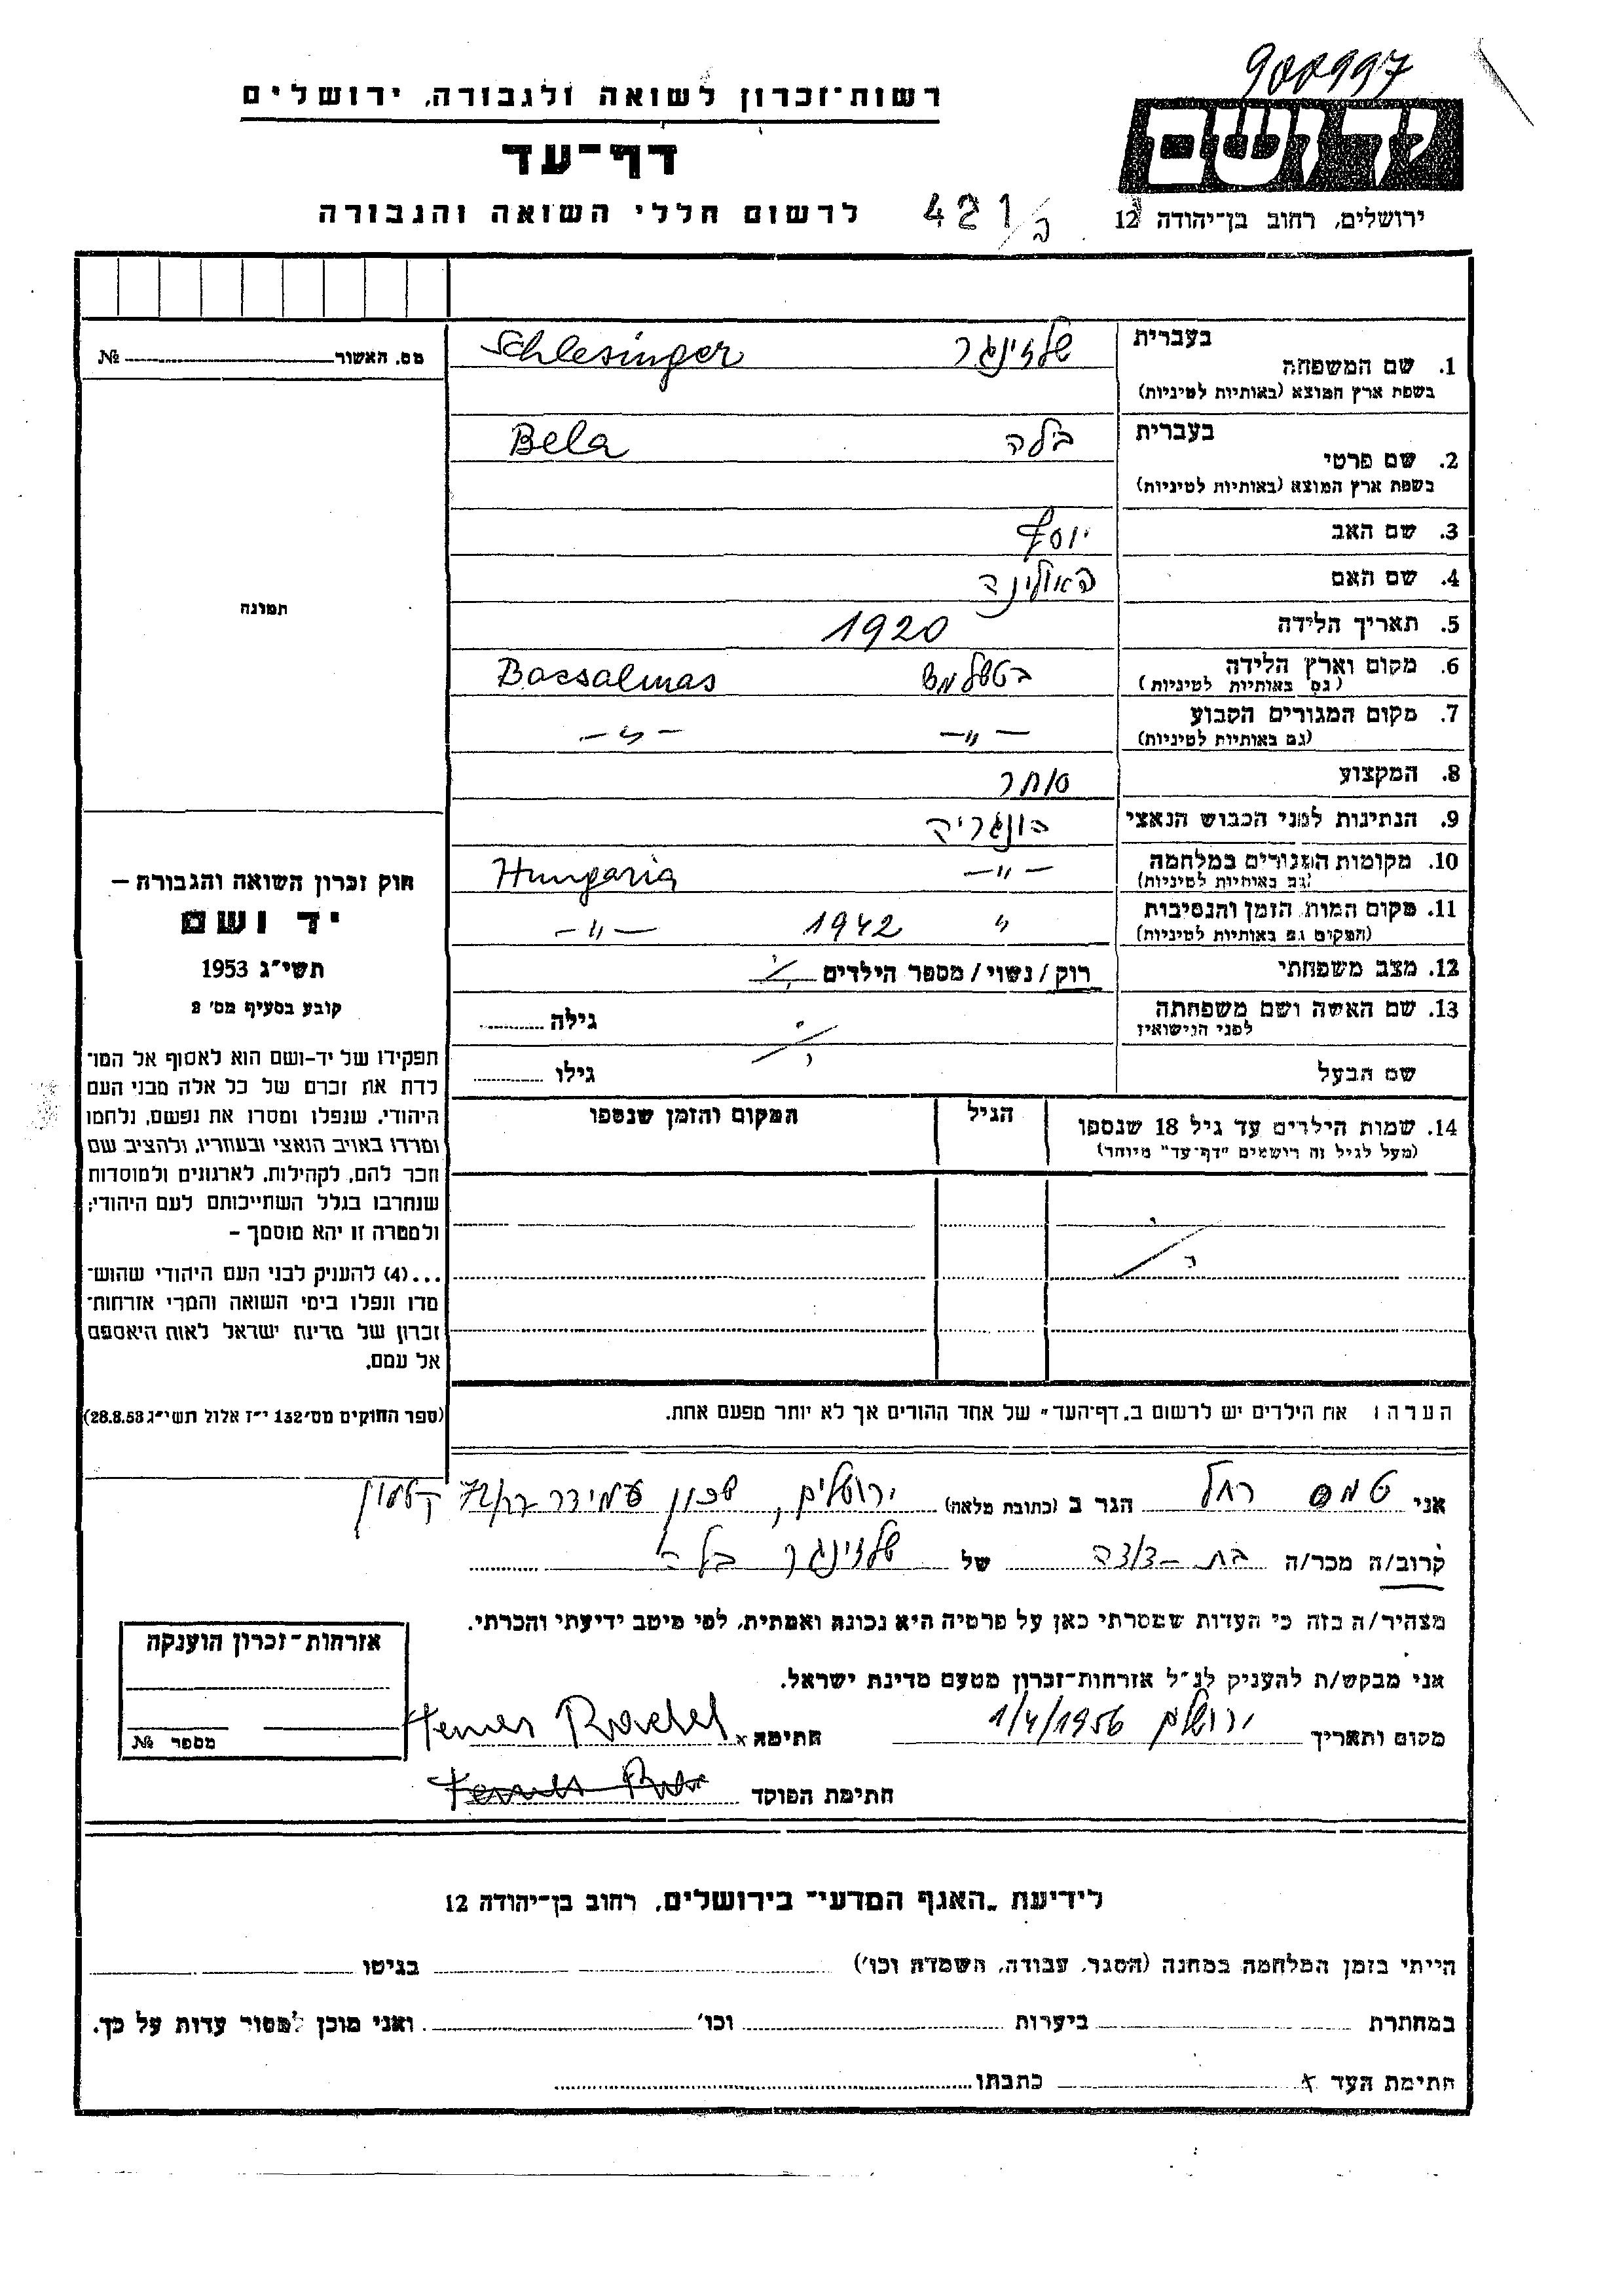 900997
רשות־זכרון לשואה ולגבורה, ירושלים
ידושם
דף־עד
לרשום חללי השואה והגבורה
421/
ירושלים, רחוב בן־יהודה 12
בעברית
שלזינגר Schlesinger
מס. האשור № 
1. שם המשפחה
בשפת ארץ המוצא (באותיות לטיניות)
בעברית
בלה Bela
2. שם פרטי
בשפת ארץ המוצא (באותיות לטיניות)
3. שם האב יוסף
4. שם האם פאולינה
תמונה
5. תאריך הלידה 1920
6. מקום וארץ הלידה Bacsalmas
(גם באותיות לטיניות)
7. מקום המגורים הקבוע —„— —„—
(גם באותיות לטיניות)
8. המקצוע סוחר
9. הנתינות לפני הכבוש הנאצי הונגריה
10. מקומות המגורים במלחמה —„— Hungaria
(גם באותיות לטיניות)
11. מקום המות, הזמן והנסיבות „ 1942 —„—
(המקום גם באותיות לטיניות)
12. מצב משפחתי רוק / נשוי / מספר הילדים
13. שם האשה ושם משפחתה גילה
לפני הנישואין
שם הבעל גילו
14. שמות הילדים עד גיל 18 שנספו הגיל המקום והזמן שנספו
(מעל לגיל זה רושמים "דף־עד" מיוחד)
חוק זכרון השואה והגבורה —
יד ושם
תשי״ג 1953
קובע בסעיף מס׳ 2
תפקידו של יד-ושם הוא לאסוף אל המו־
לדת את זכרם של כל אלה מבני העם
היהודי, שנפלו ומסרו את נפשם, נלחמו
ומרדו באויב הנאצי ובעוזריו, ולהציב שם
וזכר להם, לקהילות, לארגונים ולמוסדות
שנחרבו בגלל השתייכותם לעם היהודי;
ולמטרה זו יהא מוסמך —
...(4) להעניק לבני העם היהודי שהוש־
מדו ונפלו בימי השואה והמרי אזרחות־
זכרון של מדינת ישראל לאות היאספם
אל עמם.
(ספר החוקים מס׳ 132 י״ז אלול תשי״ג 28.8.53)
הערה: את הילדים יש לרשום ב„דף־העד" של אחד ההורים אך לא יותר מפעם אחת.
אני טמס רחל הגר ב (כתובת מלאה) ירושלים, שכון עמידר קטמון
קרוב/ה מכר/ה בת-דודה של שלזינגר בלה
מצהיר/ה בזה כי העדות שמסרתי כאן על פרטיה היא נכונה ואמתית, לפי מיטב ידיעתי והכרתי.
אני מבקש/ת להעניק לנ״ל אזרחות־זכרון מטעם מדינת ישראל.
מקום ותאריך ירושלים 1/4/1956 חתימה x Temes Rachel
חתימת הפוקד
אזרחות־זכרון הוענקה
מספר №
לידיעת „האגף המדעי" בירושלים, רחוב בן־יהודה 12
הייתי בזמן המלחמה במחנה (הסגר, עבודה, השמדה וכו׳) בגיטו
במחתרת ביערות וכו׳ ואני מוכן למסור עדות על כך.
חתימת העד x כתבתו